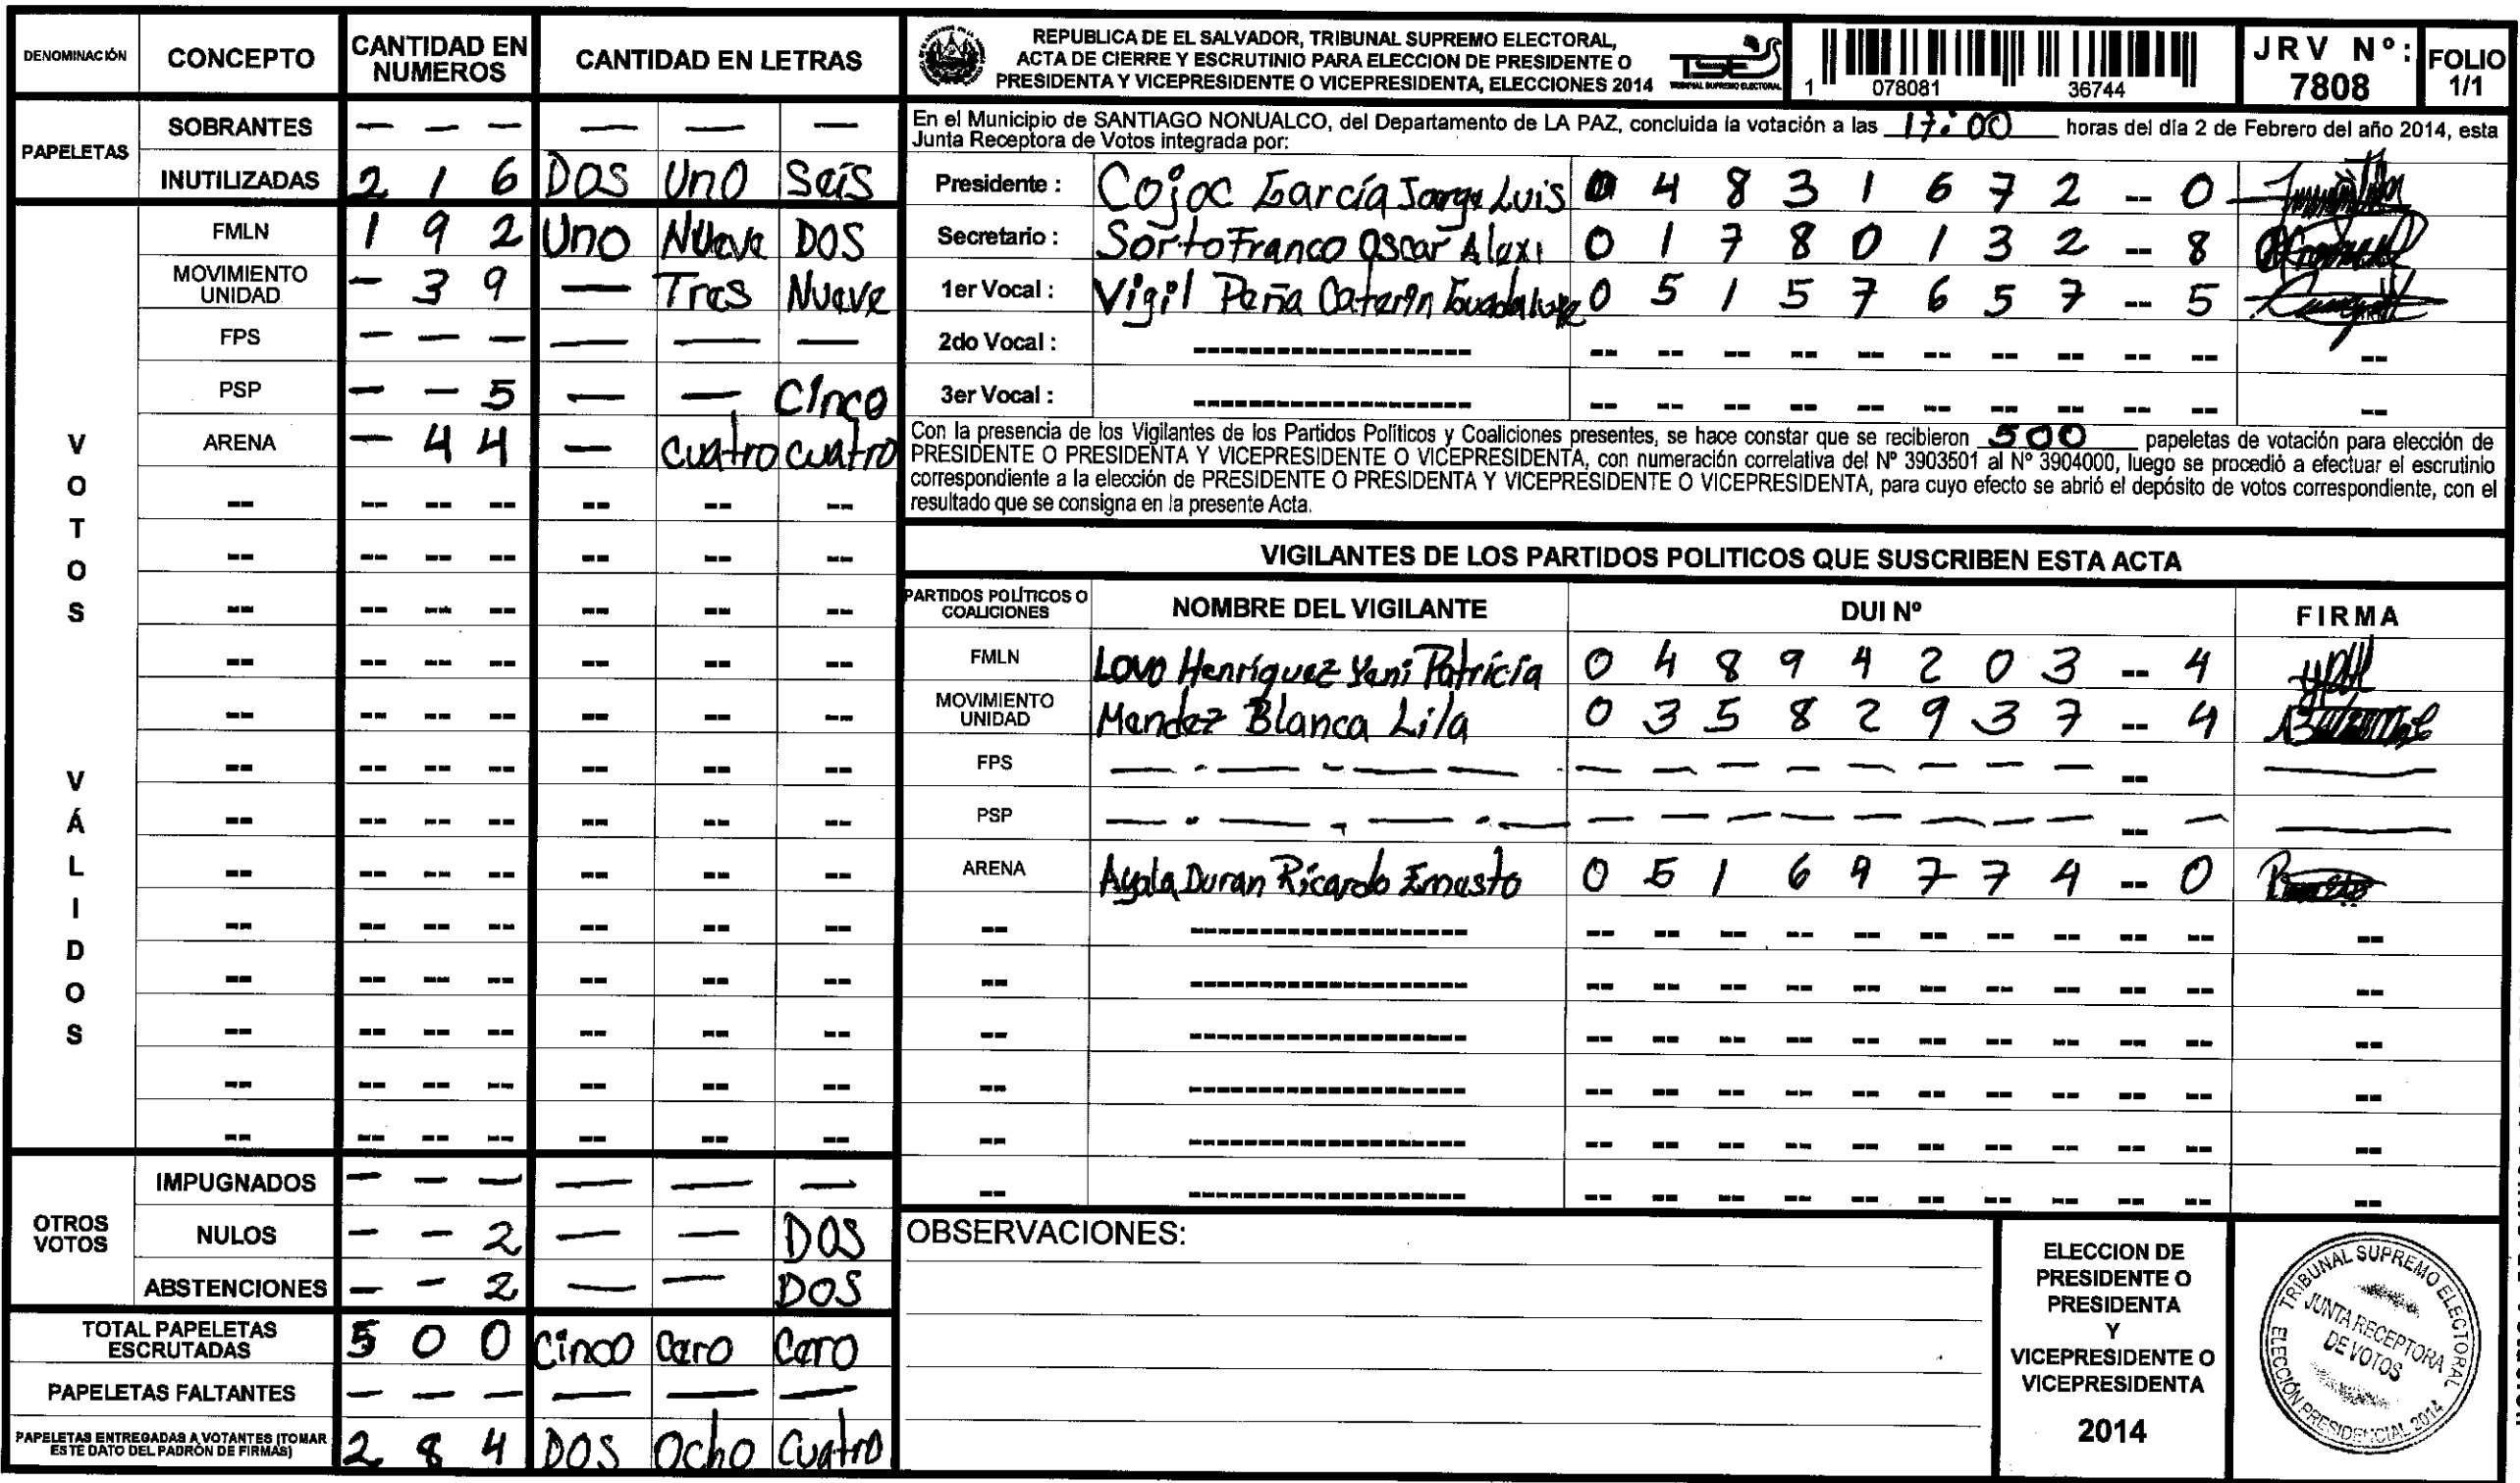 DENOMINACIÓN CONCEPTO CANTIDAD EN NUMEROS CANTIDAD EN LETRAS
PAPELETAS
SOBRANTES — — — — — —
INUTILIZADAS 2 1 6 DOS Uno Seis
VOTOS VÁLIDOS
FMLN 1 9 2 Uno Nueve DOS
MOVIMIENTO UNIDAD - 3 9 — Tres Nueve
FPS — — — — — —
PSP — — 5 — — Cinco
ARENA — 4 4 — cuatro cuatro
-- -- -- -- -- -- --
-- -- -- -- -- -- --
-- -- -- -- -- -- --
-- -- -- -- -- -- --
-- -- -- -- -- -- --
-- -- -- -- -- -- --
-- -- -- -- -- -- --
-- -- -- -- -- -- --
-- -- -- -- -- -- --
-- -- -- -- -- -- --
-- -- -- -- -- -- --
-- -- -- -- -- -- --
-- -- -- -- -- -- --
OTROS VOTOS
IMPUGNADOS — — — — — —
NULOS — — 2 — — DOS
ABSTENCIONES — - 2 — — DOS
TOTAL PAPELETAS ESCRUTADAS 5 0 0 Cinco Cero Cero
PAPELETAS FALTANTES — — — — — —
PAPELETAS ENTREGADAS A VOTANTES (TOMAR ESTE DATO DEL PADRÓN DE FIRMAS) 2 8 4 DOS Ocho Cuatro
REPUBLICA DE EL SALVADOR, TRIBUNAL SUPREMO ELECTORAL,
ACTA DE CIERRE Y ESCRUTINIO PARA ELECCION DE PRESIDENTE O
PRESIDENTA Y VICEPRESIDENTE O VICEPRESIDENTA, ELECCIONES 2014
TSE
TRIBUNAL SUPREMO ELECTORAL
1 078081 36744
JRV Nº: 7808
FOLIO 1/1
En el Municipio de SANTIAGO NONUALCO, del Departamento de LA PAZ, concluida la votación a las 17:00 horas del día 2 de Febrero del año 2014, esta
Junta Receptora de Votos integrada por:
Presidente : Cojoc García Jorge Luis 0 4 8 3 1 6 7 2 -- 0
Secretario : Sorto Franco Oscar Alexi 0 1 7 8 0 1 3 2 -- 8
1er Vocal : Vigil Peña Caterin Guadalupe 0 5 1 5 7 6 5 7 -- 5
2do Vocal : -------------------- -- -- -- -- -- -- -- -- -- -- --
3er Vocal : -------------------- -- -- -- -- -- -- -- -- -- -- --
Con la presencia de los Vigilantes de los Partidos Políticos y Coaliciones presentes, se hace constar que se recibieron 500 papeletas de votación para elección de
PRESIDENTE O PRESIDENTA Y VICEPRESIDENTE O VICEPRESIDENTA, con numeración correlativa del Nº 3903501 al Nº 3904000, luego se procedió a efectuar el escrutinio
correspondiente a la elección de PRESIDENTE O PRESIDENTA Y VICEPRESIDENTE O VICEPRESIDENTA, para cuyo efecto se abrió el depósito de votos correspondiente, con el
resultado que se consigna en la presente Acta.
VIGILANTES DE LOS PARTIDOS POLITICOS QUE SUSCRIBEN ESTA ACTA
PARTIDOS POLÍTICOS O COALICIONES NOMBRE DEL VIGILANTE DUI Nº FIRMA
FMLN Lovo Henríquez Yeni Patricia 0 4 8 9 4 2 0 3 -- 4
MOVIMIENTO UNIDAD Mendez Blanca Lila 0 3 5 8 2 9 3 7 -- 4
FPS — — — — — — — — — — — — -- —
PSP — — — — — — — — — — — — -- — —
ARENA Ayala Duran Ricardo Ernesto 0 5 1 6 9 7 7 4 -- 0
-- -------------------- -- -- -- -- -- -- -- -- -- -- --
-- -------------------- -- -- -- -- -- -- -- -- -- -- --
-- -------------------- -- -- -- -- -- -- -- -- -- -- --
-- -------------------- -- -- -- -- -- -- -- -- -- -- --
-- -------------------- -- -- -- -- -- -- -- -- -- -- --
-- -------------------- -- -- -- -- -- -- -- -- -- -- --
OBSERVACIONES:
ELECCION DE
PRESIDENTE O
PRESIDENTA
Y
VICEPRESIDENTE O
VICEPRESIDENTA
2014
TRIBUNAL SUPREMO ELECTORAL
JUNTA RECEPTORA
DE VOTOS
ELECCIÓN PRESIDENCIAL 2014